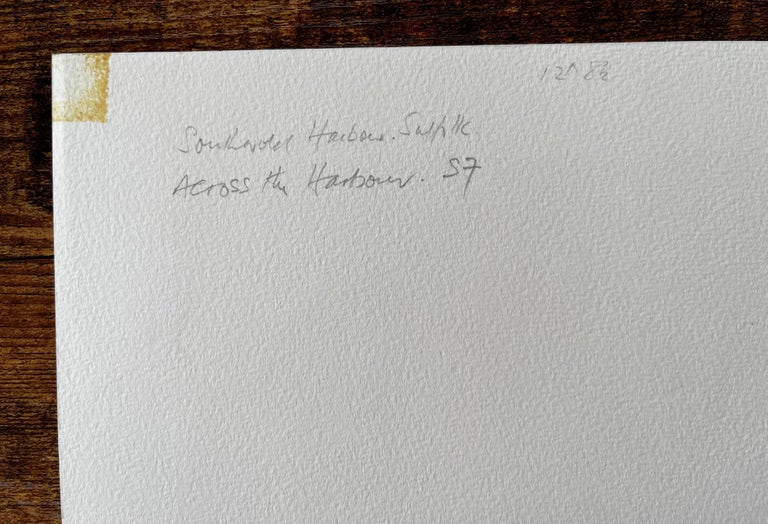 12" 8½
Southwold Harbour. Suffolk.
Across the Harbour. S7